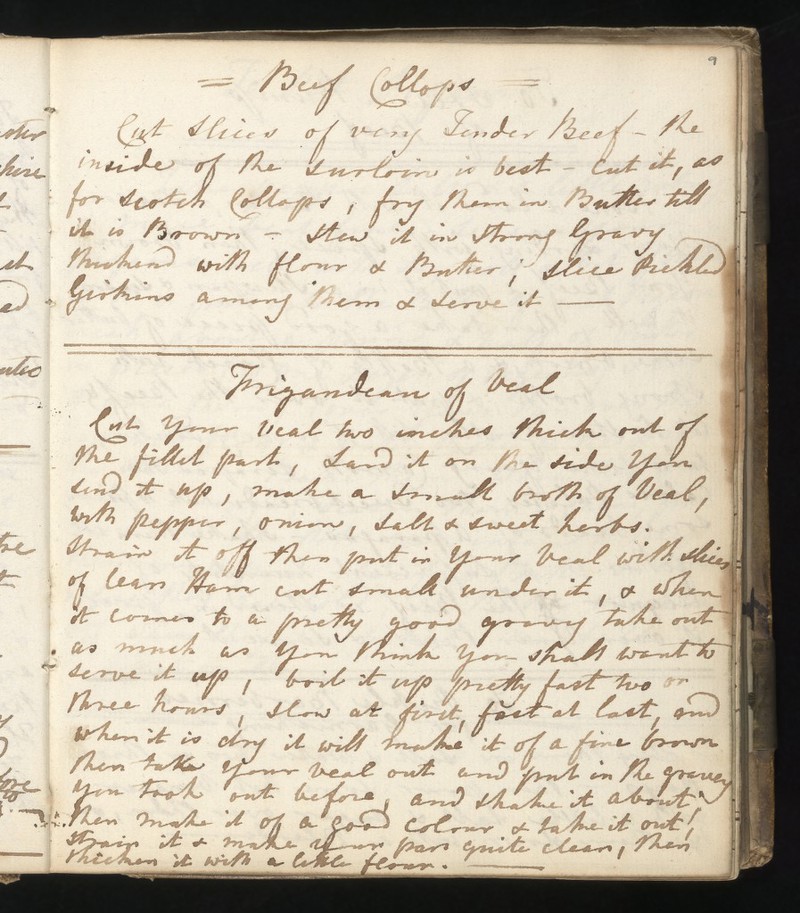 9
= Beef Collops =
Cut slices of very Tender Beef - the
inside of the surloin is best - Cut it, as
for Scotch Collops, fry them in Butter till
it is Brown - stew it in strong Gravy
thickend with flour & Butter; slice Pickled
Girkins among them & serve it —
Frigandeau of Veal
Cut your veal two inches thick out of
the fillet part, Lard it on the side you
send it up, make a small broth of Veal,
with pepper, onion, salt & sweet herbs.
Strain it off then put in your Veal with slices
of lean Ham cut small under it, & when
it comes to a pretty good gravy take out
as much as you think you shall want to
serve it up, boil it up pretty fast two or
three hours, slow at first, fast at last, and
when it is dry it will make it of a fine brown
then take your veal out and put in the gravey
you took out before, and shake it about
then make it of a good Colour & take it out,
strain it & make your pan quite clean, then
thicken it with a little flour. —